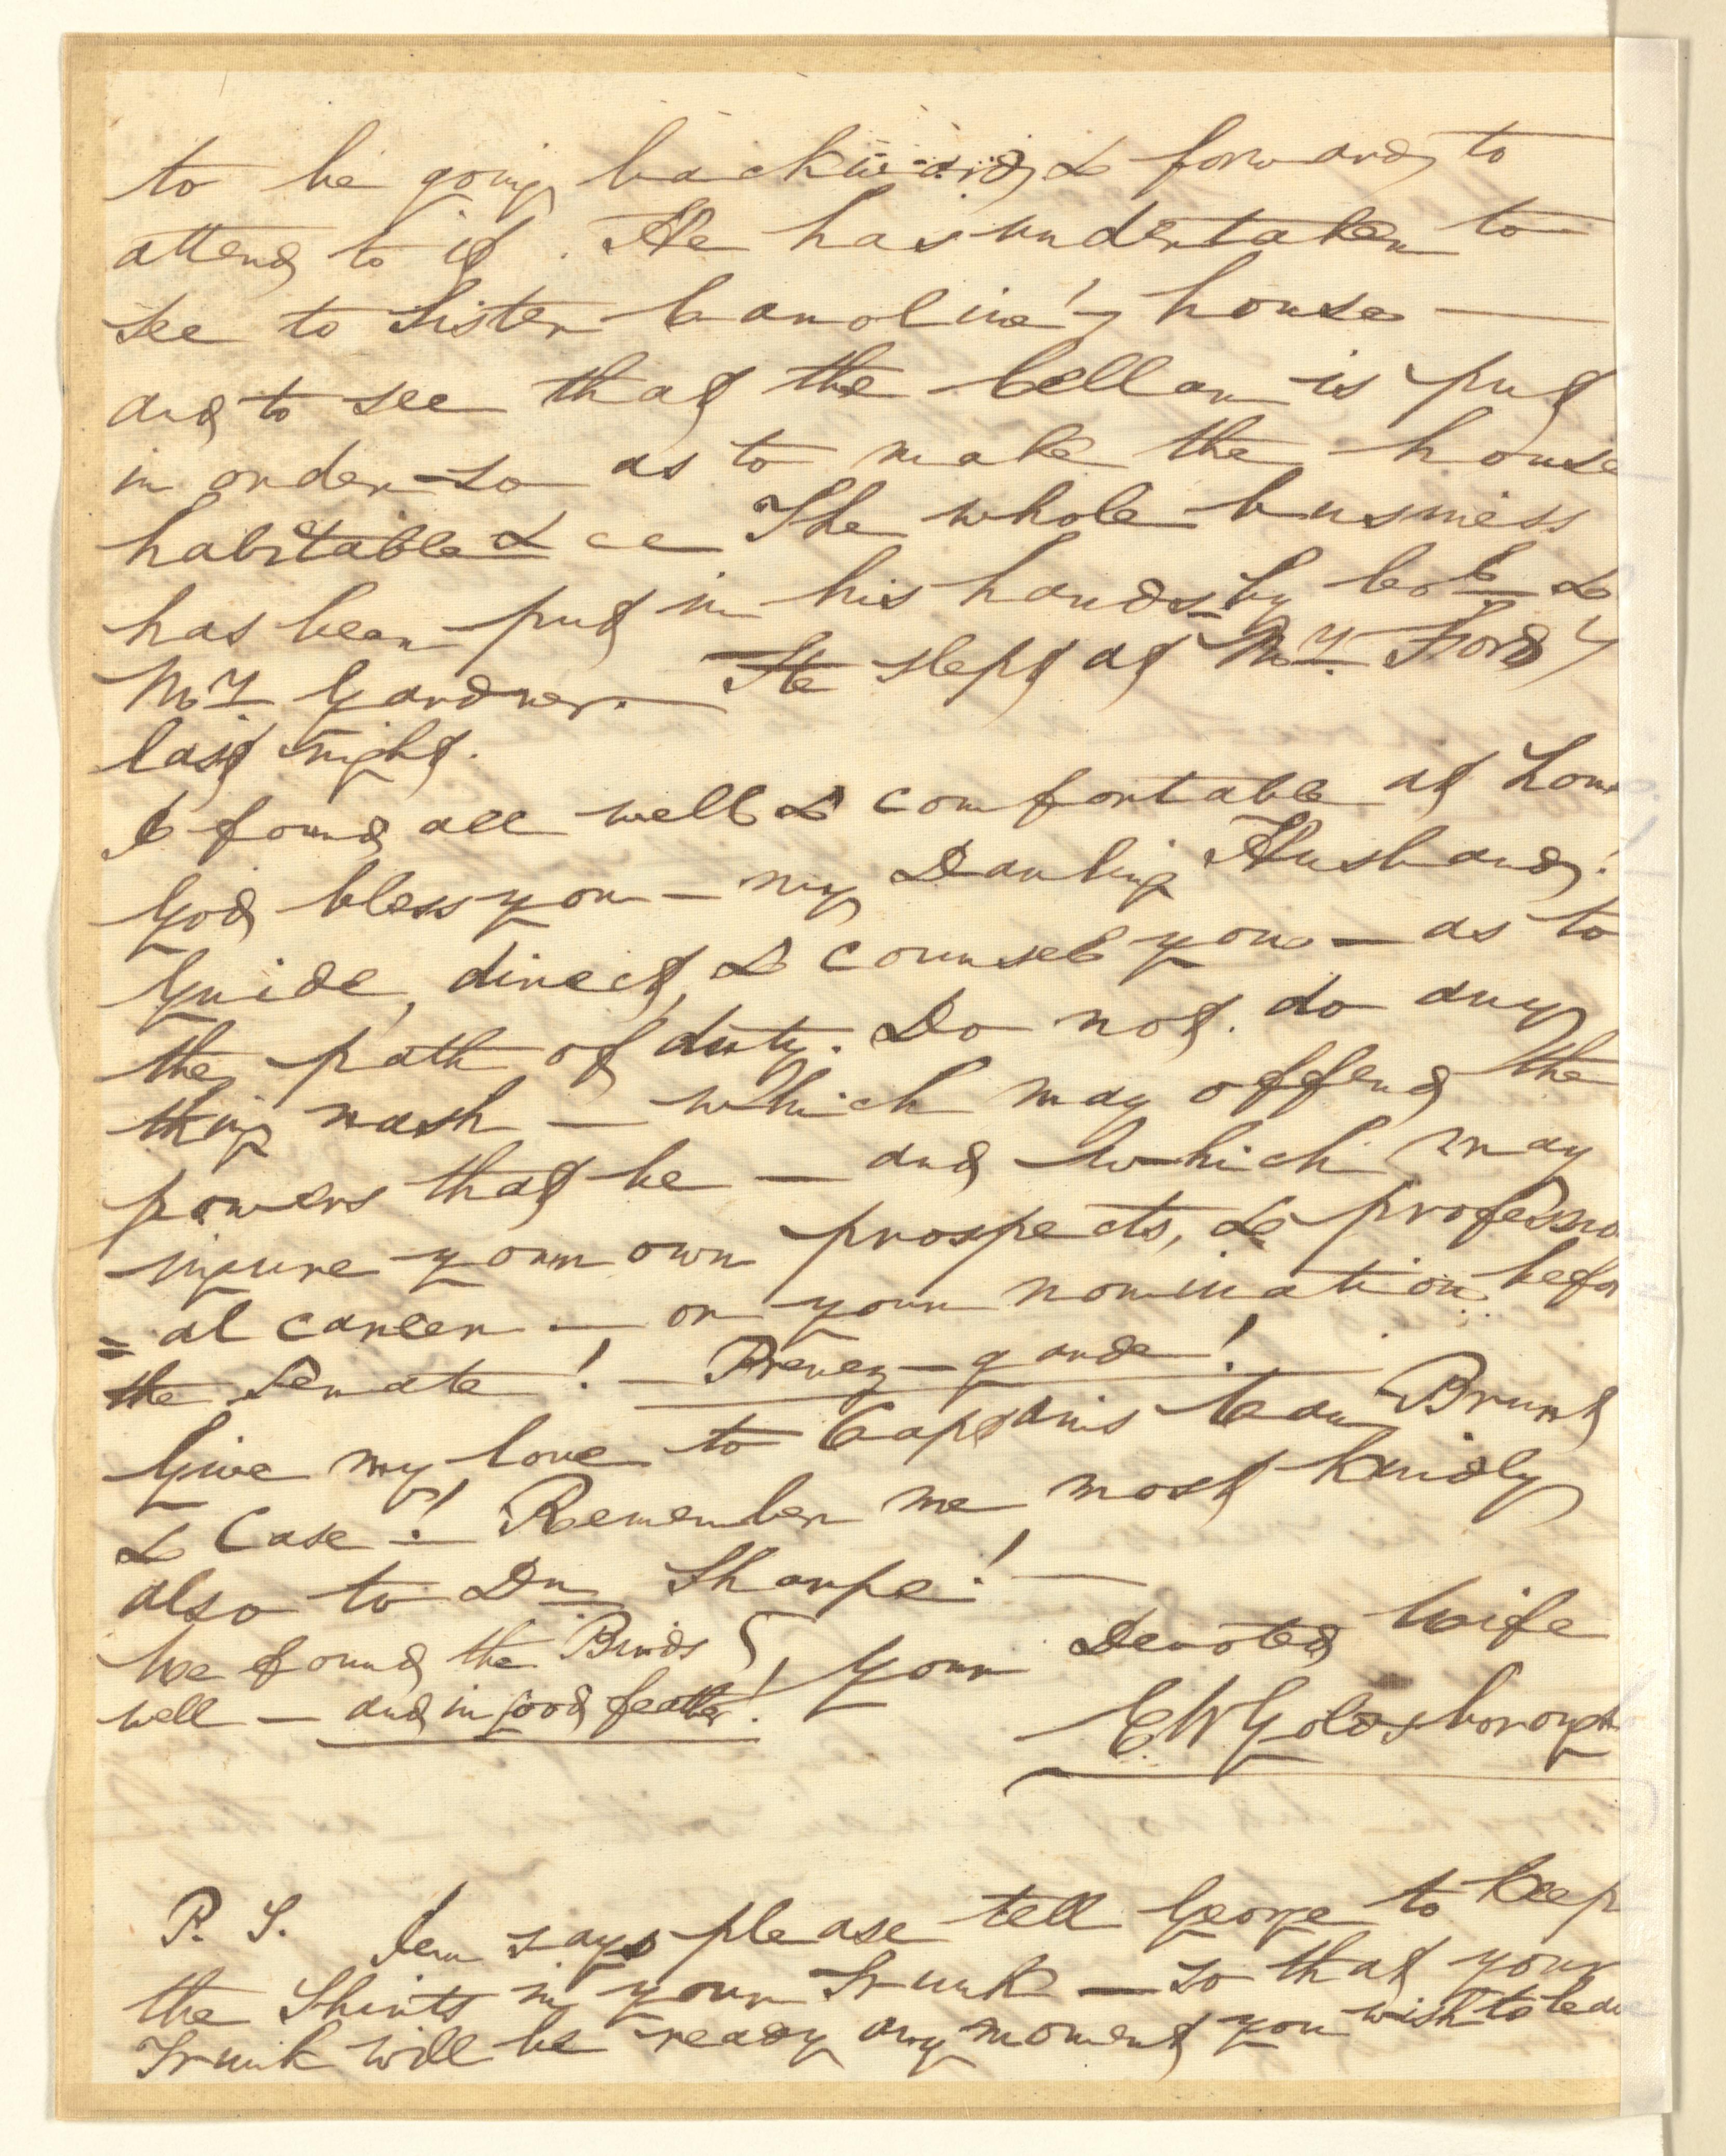 to be going backwards & forwards to
attend to it. He has undertaken to
see to Sister Caroline's house —
and to see that the Cellar is put
in order so as to make the house
habitable & ce The whole business
has been put in his hands by Col &
Mr Gardner. — He slept at Mr. Ford's
last night.
I found all well & comfortable at hom
God bless you — my Darling Husband!
Guide, direct, & counsel you — as to
the path of duty. Do not do any
thing rash — which may offend the
powers that be — and which may
injure your own prospects, & professio
= al career — or your nomination befo
the Senate! — Prenez-garde!
Give my love to Captains Brunt
& Case! — Remember me most kindly
also to Dr Sharpe! —
We found the Birds
well — and in good feather!
Your Devoted Wife
E W Goldsborough
P. S. Jem says please tell George to keep
the Shirts in your Trunk — so that your
Trunk will be ready any moment you wish to leave